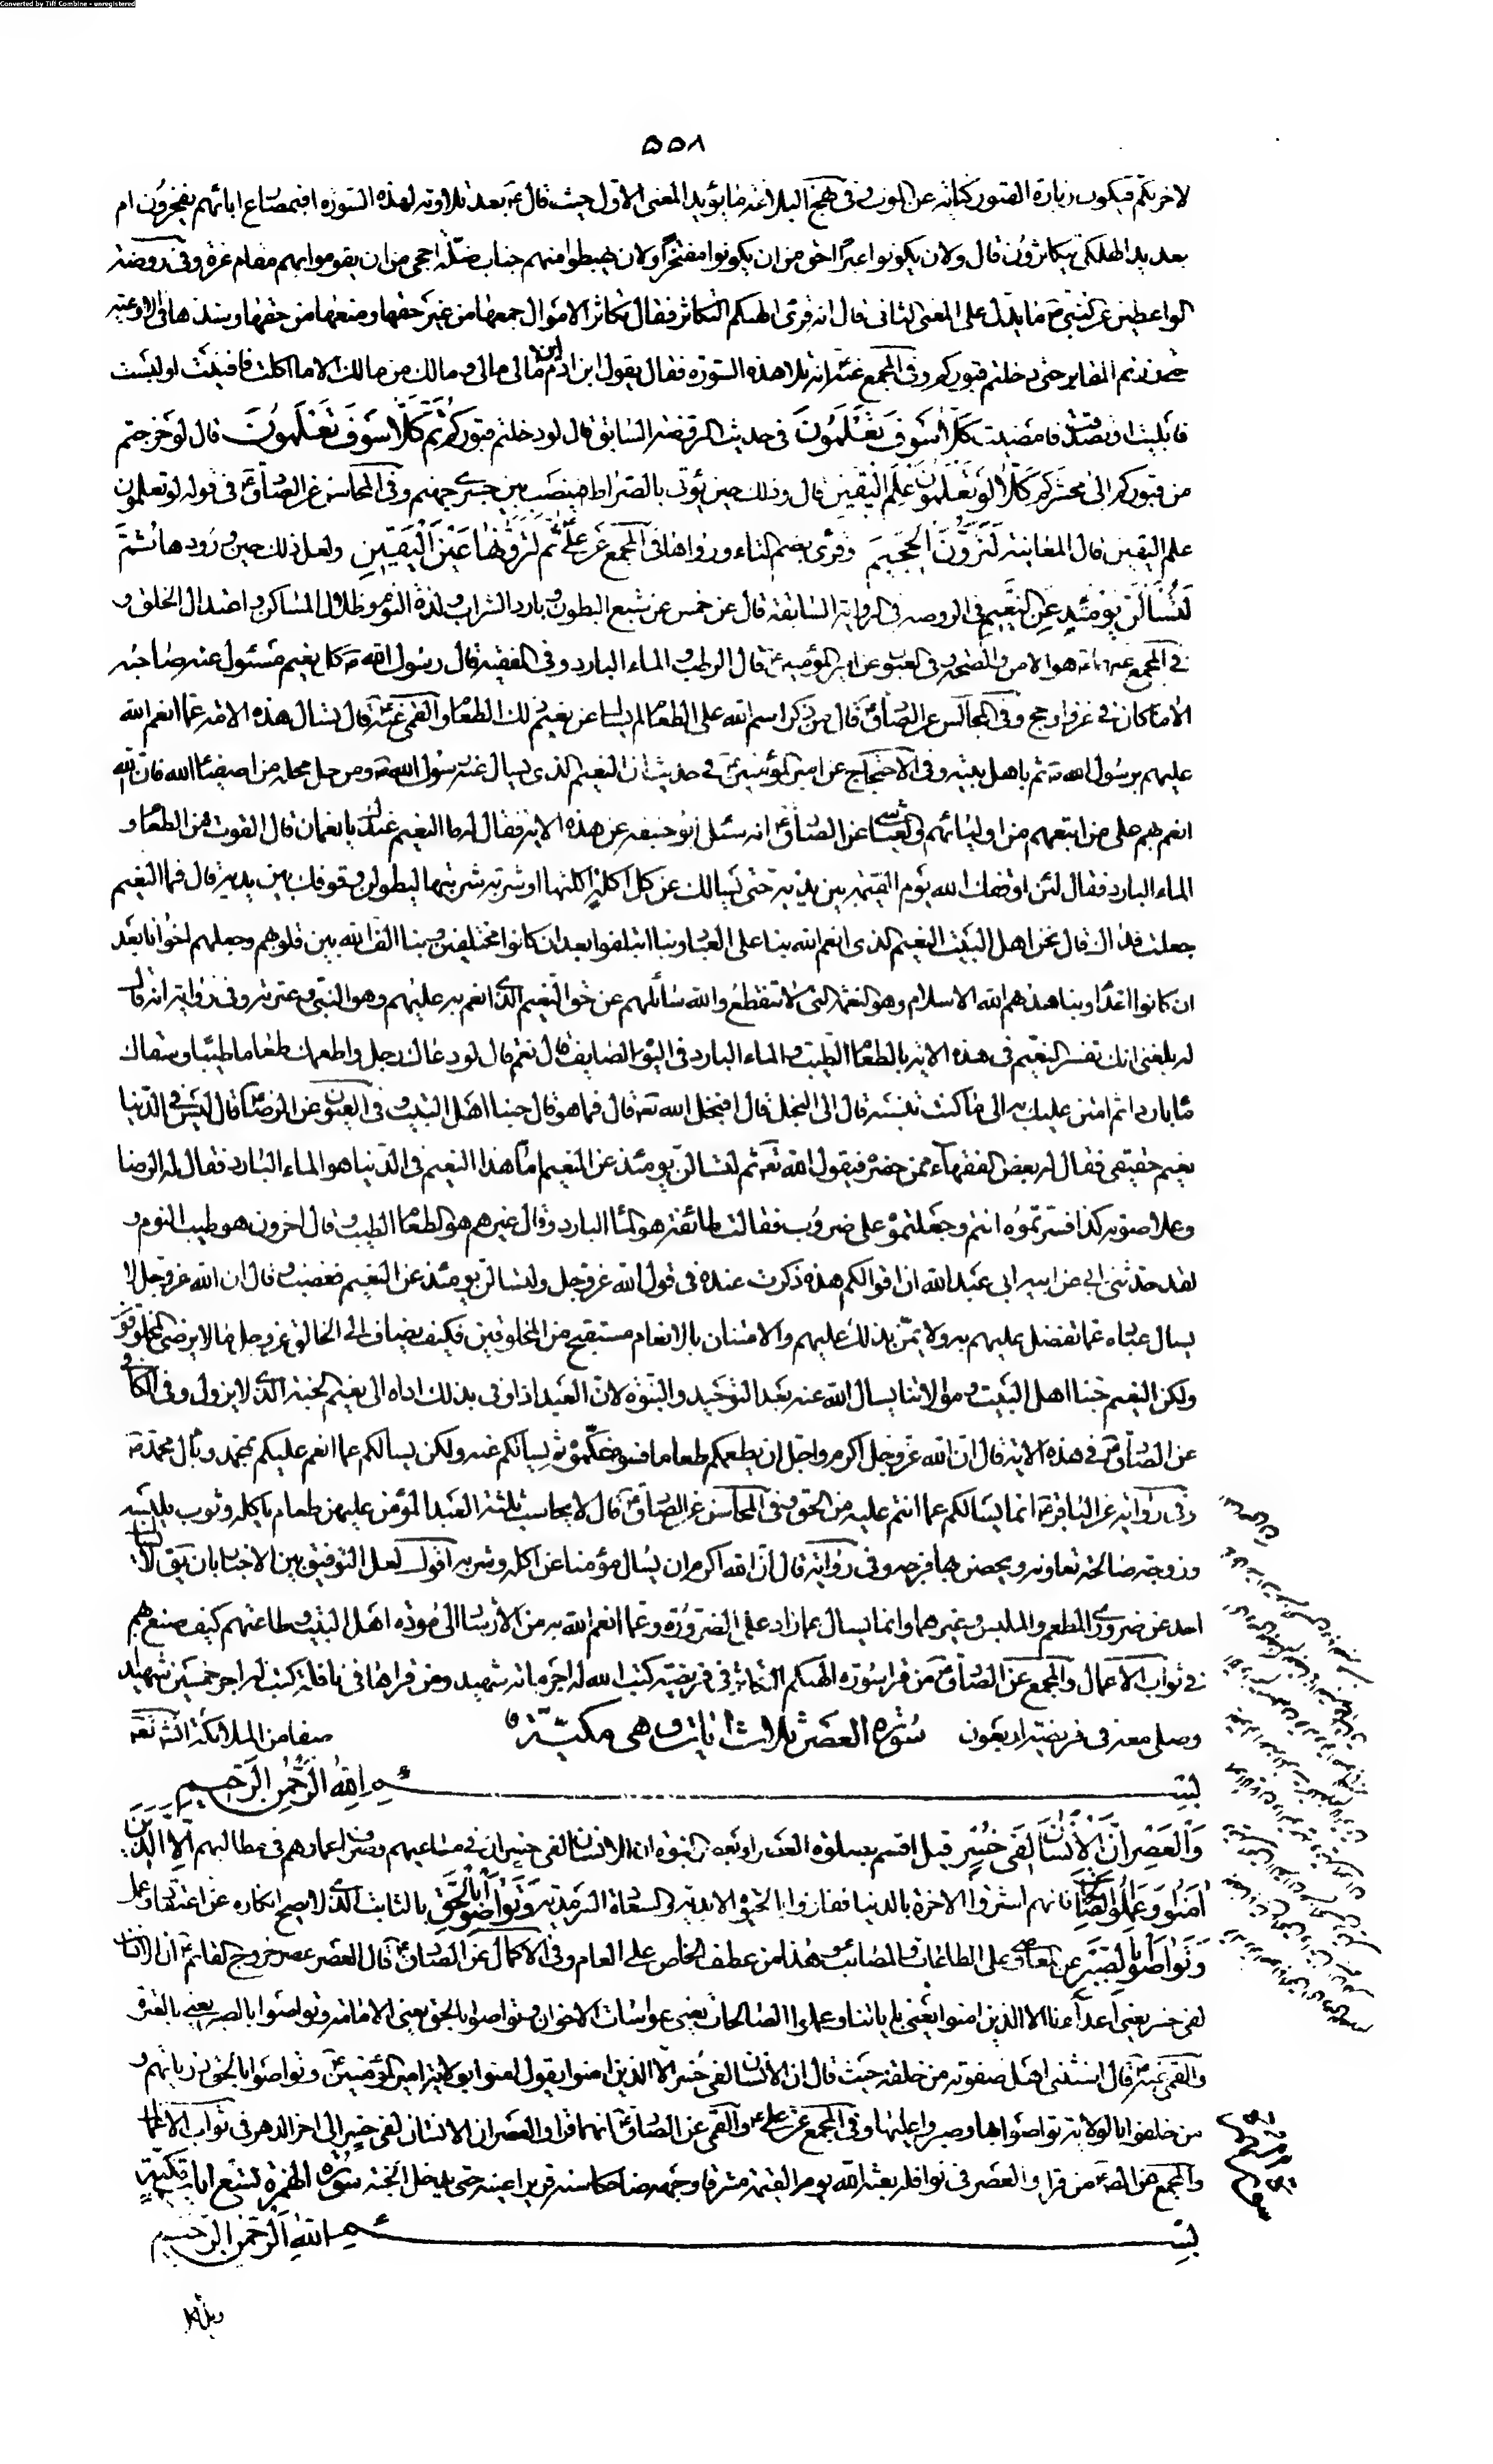 Converted by Tiff Combine - unregistered
۵۵۸
لاخرتكم فيكون زيارة القبور كناية عن الموت وفى نهج البلاغة ما يؤيد المعنى الاول حيث قال ع بعد تلاوته لهذه السورة افبمصارع ابائهم يفخرون ام
بعديد الهلكى يتكاثرون قال ولان يكونوا عبرا احق من ان يكونوا مفتخرا ولان يهبطوا منهم جناب ذلة احجى من ان يقوموا بهم مقام عزة وفى روضة
الواعظين عن النبى ص ما يدل على المعنى الثانى قال انه قرئ الهيكم التكاثر فقال تكاثر الاموال جمعها من غير حقها ومنعها من حقها وشدها فى الاوعية
حتى زرتم المقابر حتى دخلتم قبوركم وفى المجمع عنه انه تلا هذه السورة فقال يقول ابن ادم مالى مالى ومالك من مالك الا ما اكلت فافنيت او لبست
فابليت او تصدقت فامضيت كَلَّا سَوفَ تَعْلَمُونَ فى حديث الروضة السابق قال لو دخلتم قبوركم ثُمَّ كَلَّا سَوفَ تَعْلَمُونَ قال لو خرجتم
من قبوركم الى محشركم كَلَّا لَوتَعْلَمُونَ عِلْمَ الْيَقينِ قال وذلك حين يؤتى بالصراط فينصب بين جسرى جهنم وفى المحاسن عن الصادق ع فى قوله لو تعلمون
علم اليقين قال المعاينة لَتَرَوُنَّ الْجَحيمَ وقرئ بضم التاء ورواها فى المجمع عن على ع ثُمَّ لَتَرَوُنَّهَا عَيْنَ الْيَقينِ ولعل ذلك حين ورودها ثُمَّ
لَتُسْأَلُنَّ يَوْمَئِذٍ عَنِ النَّعيمِ فى الروضة فى الرواية السابقة قال عن خمس عن شبع البطون وبارد الشراب ولذة النوم وظلال المساكن واعتدال الخلق و
فى المجمع عنهما ع هو الامن والصحة وفى العيون عن امير المؤمنين ع قال الرطب والماء البارد وفى الفقيه قال رسول الله ص كل نعيم مسئول عنه صاحبه
الا ما كان فى غزو او حج وفى المجالس عن الصادق ع قال من ذكر اسم الله على الطعام لم يسئل عن نعيم ذلك الطعام والقمى عنه ع قال تسئل هذه الامة عما انعم الله
عليهم برسول الله ص ثم باهل بيته وفى الاحتجاج عن امير المؤمنين ع فى حديث ان النعيم الذى يسال عنه رسول الله ص ومن حل محله من اصفياء الله فان الله
انعم بهم على من اتبعهم من اوليائهم والعياشى عن الصادق ع انه سئل ابو حنيفة عن هذه الاية فقال له ما النعيم عندك يا نعمان قال القوت من الطعام و
الماء البارد فقال لئن اوقفك الله يوم القيمة بين يديه حتى يسالك عن كل اكلة اكلتها او شربة شربتها ليطولن وقوفك بين يديه قال فما النعيم
جعلت فداك قال نحن اهل البيت النعيم الذى انعم الله بنا على العباد وبنا ائتلفوا بعد ان كانوا مختلفين وبنا الف الله بين قلوبهم وجعلهم اخوانا بعد
ان كانوا اعداء وبنا هداهم الله للاسلام وهو النعمة التى لا تنقطع والله سائلهم عن حق النعيم الذى انعم به عليهم وهو النبى وعترته وفى رواية انه قال
له بلغنى انك تفسر النعيم فى هذه الاية بالطعام الطيب والماء البارد فى اليوم الصايف قال نعم قال لو دعاك رجل واطعمك طعاما طيبا وسقاك
ماء باردا ثم امتن عليك به الى ما كنت تنسبه قال الى البخل قال افيبخل الله تعالى قال فما هو قال حبنا اهل البيت وفى العيون عن الرضا ع قال ليس فى الدنيا
نعيم حقيقى فقال له بعض الفقهاء ممن حضره فيقول الله تعالى ثم لتسالن يومئذ عن النعيم اما هذا النعيم فى الدنيا هو الماء البارد فقال له الرضا
وعلا صوته كذا فسرتموه انتم وجعلتموه على ضروب فقالت طائفة هو الماء البارد وقال غيرهم هو الطعام الطيب وقال اخرون هو طيب النوم و
لقد حدثنى ابى عن ابيه ابى عبد الله ان اقوالكم هذه ذكرت عنده فى قول الله عز وجل ولتسالن يومئذ عن النعيم فغضب وقال ان الله عز وجل لا
يسال عباده عما تفضل عليهم به ولا يمن بذلك عليهم والامتنان بالانعام مستقبح من المخلوقين فكيف يضاف الى الخالق عز وجل ما لا يرضى المخلوقون
ولكن النعيم حبنا اهل البيت وموالاتنا يسال الله عنه بعد التوحيد والنبوة لان العبد اذا وفى بذلك اداه الى نعيم الجنة الذى لا يزول وفى الكافى
عن الصادق ع فى هذه الاية قال ان الله عز وجل اكرم واجل ان يطعمكم طعاما فسوغكموه ثم يسالكم عنه ولكن يسالكم عما انعم عليكم بمحمد وبال محمد ص
وفى رواية عن الباقر ع انما يسالكم عما انتم عليه من الحق وفى المحاسن عن الصادق ع قال ثلثة لا يحاسب العبد المؤمن عليهن طعام ياكله وثوب يلبسه
وزوجة صالحة تعاونه ويحصن بها فرجه وفى رواية قال ان الله اكرم ان يسال مؤمنا عن اكله وشربه اقول لعل التوفيق بين الاخبار بان يق لا يسال
احد عن ضرورى المطعم والملبس وغيرهما وانما يسال عما زاد على الضرورة وعما انعم الله به من الارشاد الى مودة اهل البيت وطاعتهم كيف صنع بهم
فى ثواب الاعمال والمجمع عن الصادق ع من قرا سورة الهيكم التكاثر فى فريضة كتب الله له اجر مائة شهيد ومن قراها فى نافلة كتب له اجر خمسين شهيدا
وصلى معه فى فريضته اربعون سُورَة العَصر ثلاث ايات وهى مكيّة صفا من الملائكة انشاء الله تعالى
بِسْمِ اللَّهِ الرَّحْمٰنِ الرَّحيمِ
وَالْعَصْرِ اِنَّ الْاِنْسَانَ لَفى خُسْرٍ قيل اقسم بصلوة العصر او بعصر النبوة ان الانسان لفى خسران فى مساعيهم وصرف اعمارهم فى مطالبهم اِلَّا الَّذينَ
اٰمَنُوا وَعَمِلُوا الصّالِحَاتِ فانهم اشتروا الاخرة بالدنيا ففازوا بالحيوة الابدية والسعادة السرمدية وَتَوَاصَوْا بِالْحَقِّ بالثابت الذى لا يصح انكاره من اعتقاد وعمل
وَتَوَاصَوْا بِالصَّبْرِ عن المعاصى وعلى الطاعات والمصائب وهذا من عطف الخاص على العام وفى الاكمال عن الصادق ع قال العصر عصر خروج القائم ع ان الانسان
لفى خسر يعنى اعداءنا الا الذين امنوا يعنى باياتنا وعملوا الصالحات يعنى بمواسات الاخوان وتواصوا بالحق يعنى الامامة وتواصوا بالصبر يعنى بالفترة
والقمى عنه ع قال استثنى اهل صفوته من خلقه حيث قال ان الانسان لفى خسر الا الذين امنوا يقول امنوا بولاية امير المؤمنين ع وتواصوا بالحق ذرياتهم و
من خلفوا بالولاية تواصوا بها وصبروا عليها وفى المجمع عن على ع والقمى عن الصادق ع انهما قرءا والعصر ان الانسان لفى خسر الى اخر الدهر فى ثواب الاعمال
والمجمع عن الصادق ع من قرا والعصر فى نوافله بعثه الله يوم القيمة مشرقا وجهه ضاحكا سنه قريرا عينه حتى يدخل الجنة سُورَة الهُمَزَة تسع ايات مكيّة
بِسْمِ اللَّهِ الرَّحْمٰنِ الرَّحيمِ
ويل لكل